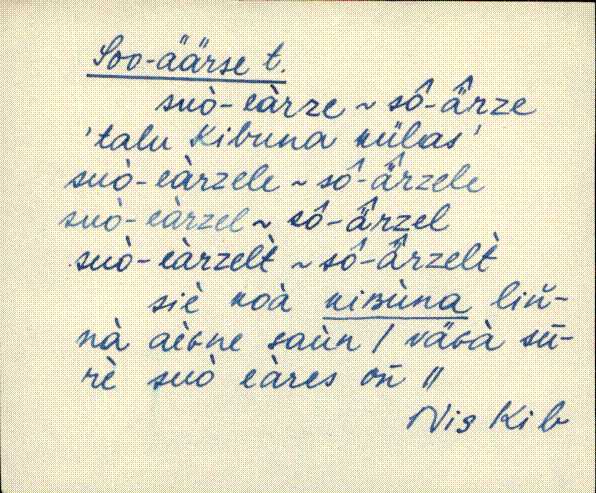 Soo-äärse t.
suò-eàrze ~ sô-ä̂rze
'talu Kibuna külas'
suò-eàrzele ~ sô-ä̂rzele
suò-eàrzel ~ sô-ä̂rzel
suò-eàrzelt̀ ~ sô-ä̂rzelt̀
siè koà kiʙùna liñ-
nà aèɢne saùn / väɢà sū-
rè suò eàres oñ //
Nig Kib